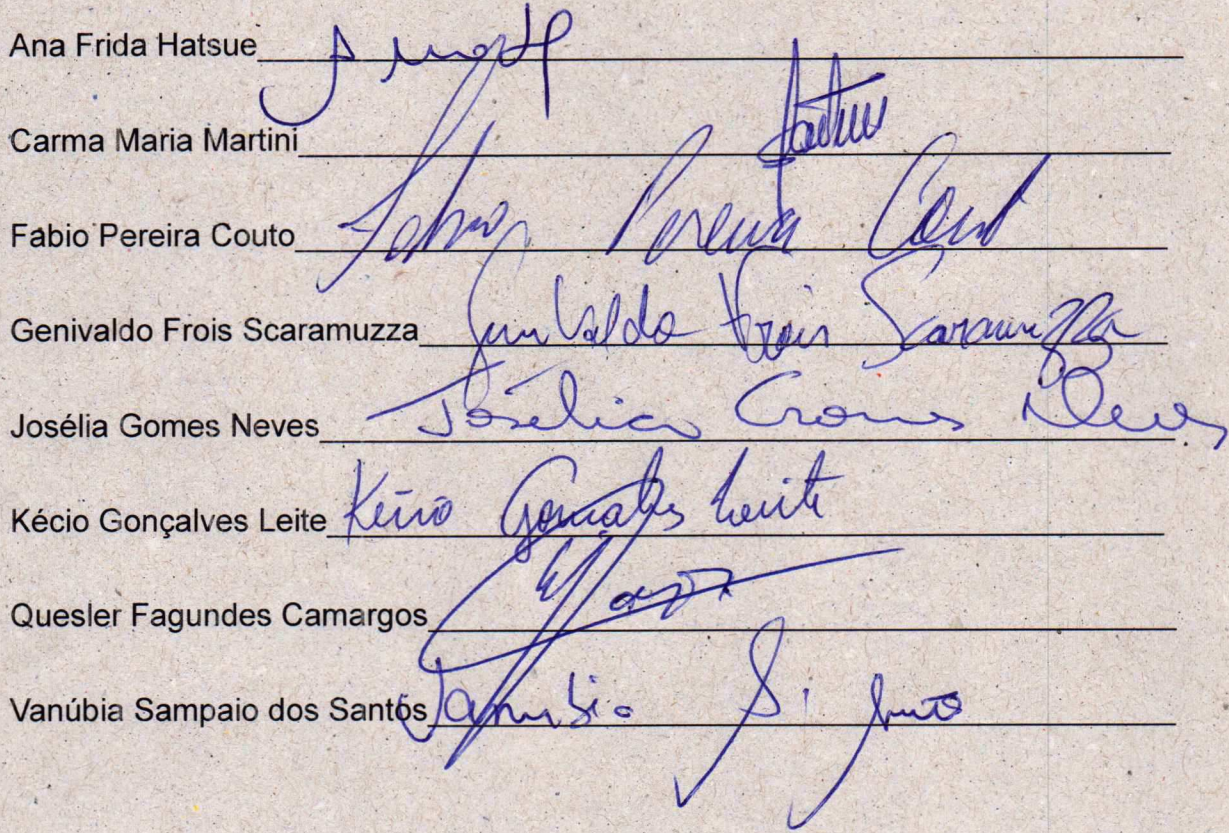 Ana Frida Hatsue
Carma Maria Martini
Fabio Pereira Couto Fabio Pereira Couto
Genivaldo Frois Scaramuzza Genivaldo Frois Scaramuzza
Josélia Gomes Neves Josélia Gomes Neves
Kécio Gonçalves Leite Kécio Gonçalves Leite
Quesler Fagundes Camargos
Vanúbia Sampaio dos Santos Vanúbia S. Santos